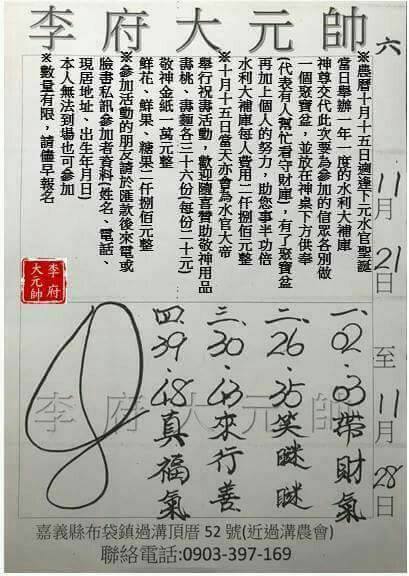 李府大元帥
六
11月21日至11月28日
※農曆十月十五日適逢下元水官聖誕
當日舉辦一年一度的水利大補庫
神尊交代此次要為參加的信眾各別做
一個聚寶盆，並放在神桌下方供奉
(代表有人幫忙看守財庫)，有了聚寶盆
再加上個人的努力，助您事半功倍
水利大補庫每人費用二仟捌佰元整
※十月十五日當天亦會為水官大帝
舉行祝壽活動，歡迎隨喜贊助敬神用品
壽桃、壽麵各三十六份(每份二十元)
敬神金紙一萬元整
鮮花、鮮果、糖果二仟捌佰元整
※參加活動的朋友請於匯款後來電或
臉書私訊參加者資料(姓名、電話、
現居地址、出生年月日)
本人無法到場也可參加
※數量有限，請儘早報名
李府
大元帥
一.02.03帶財氣
二.26.35笑瞇瞇
三.30.43來行善
四.39.48真福氣
李府大元帥
嘉義縣布袋鎮過溝頂厝52號(近過溝農會)
聯絡電話:0903-397-169